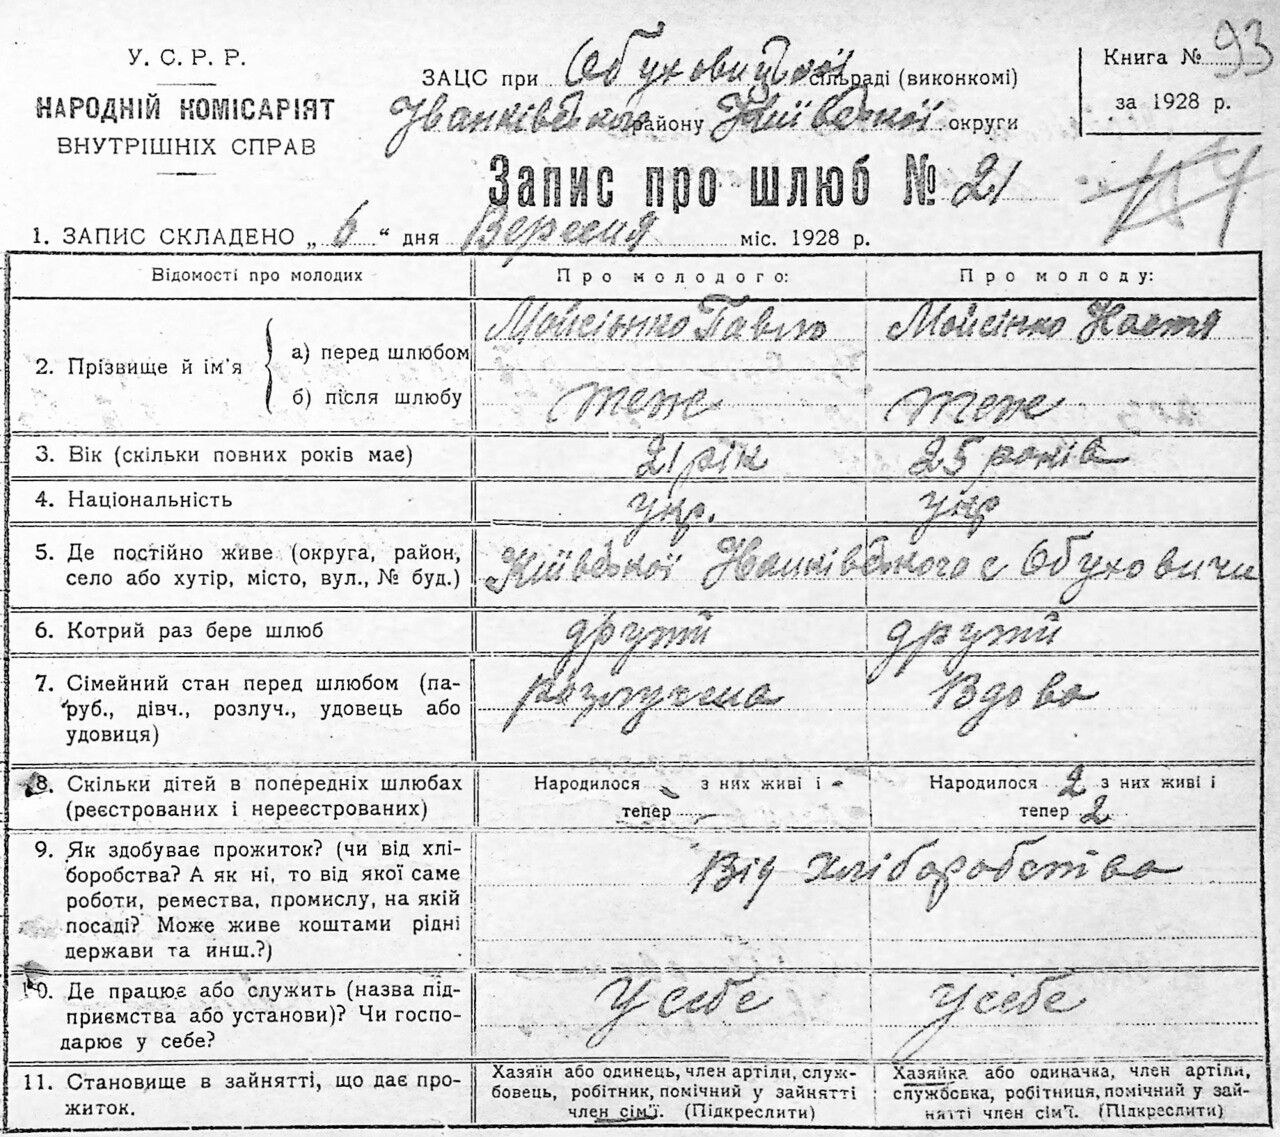 У. С. Р. Р.
НАРОДНІЙ КОМІСАРІЯТ
ВНУТРІШНІХ СПРАВ
ЗАЦС при Обуховицької сільраді (виконкомі)
Іванківського району Київської округи
Книга № 93
за 1928 р.
Запис про шлюб № 21
1. ЗАПИС СКЛАДЕНО „ 6 “ дня Вересня міс. 1928 р.
Відомості про молодих
Про молодого:
Про молоду:
2. Прізвище й ім’я
а) перед шлюбом
Мойсієнко Павло
Мойсінко Настя
б) після шлюбу
теже
теже
3. Вік (скільки повних років має)
21 рік
25 років
4. Національність
укр.
укр
5. Де постійно живе (округа, район,
село або хутір, місто, вул., № буд.)
Київської Іванківського с Обуховичи
6. Котрий раз бере шлюб
другий
другий
7. Сімейний стан перед шлюбом (па-
руб., дівч., розлуч., удовець або
удовиця)
розлучена
Вдова
8. Скільки дітей в попередніх шлюбах
(реєстрованих і нереєстрованих)
Народилося - з них живі і -
тепер -
Народилося 2 з них живі і
тепер 2
9. Як здобуває прожиток? (чи від хлі-
боробства? А як ні, то від якої саме
роботи, ремества, промислу, на якій
посаді? Може живе коштами рідні
держави та инш.?)
Від хліборобства
10. Де працює або служить (назва під-
приємства або установи)? Чи госпо-
дарює у себе?
У себе
У себе
11. Становище в зайнятті, що дає про-
житок.
Хазяїн або одинець, член артіли, служ-
бовець, робітник, помічний у зайнятті
член сім’ї. (Підкреслити)
Хазяйка або одиначка, член артіли,
службовка, робітниця, помічний у зай-
нятті член сім’ї. (Підкреслити)